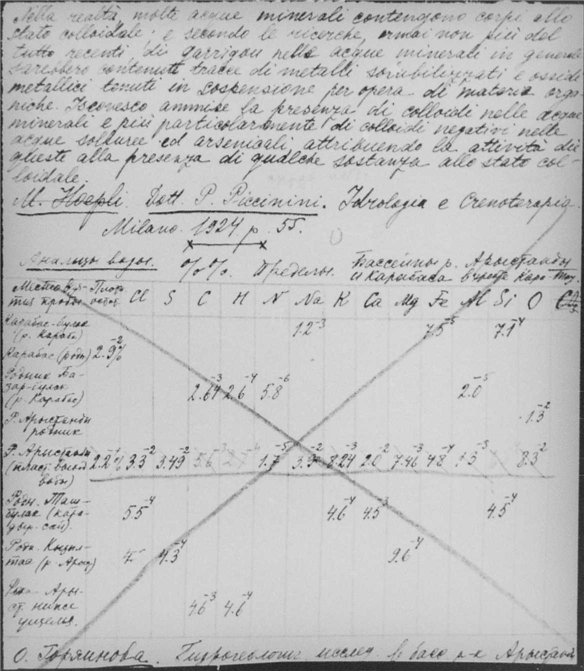 Nella realtà, molte acque minerali contengono corpi allo
stato colloidale; e secondo le ricerche, ormai non più del
tutto recenti, di Garrigou nelle acque minerali in generale
sarebbero contenuti tracce di metalli solubilizzati e ossidi
metallici tenuti in sospensione per opera di materia orga-
niche. Iscovesco ammise la presenza di colloidi nelle acque
minerali e più particolarmente di colloidi negativi nelle
acque solfuree ed arsenicali, attribuendo la attività di
queste alla presenza di qualche sostanza allo stato col-
loidale.
M. Hoepli. Dott. P. Piccinini. Idrologia e Crenoterapia.
Milano 1924 p. 55.
Анализы воды. %%. Пределы. Бассейны р. Арыстанды
и Карабаса
Cl S C H N Na K Ca Mg Fe Al Si O
Карабас-булак
(р. Карабас) 1.2⁻³ 7.5⁻⁵ 7.1⁻⁴
Карабас (родн) 2.9⁻²%
Родник Ба-
зар-булак
(р. Карабас) 2.64⁻³ 2.6⁻⁴ 5.8⁻⁶ 2.0⁻⁵
Р. Арыстанды
родник 1.3⁻²
Р. Арыстанды
3.3⁻² 3.49⁻² 1.7⁻⁵ 3.9⁻² 8.24⁻³ 2.0⁻² 7.46⁻³ 4.8⁻⁴ 1.5⁻³ 8.3⁻²
Родн. Таш-
булак (кара-
5.5⁻⁴ 4.6⁻⁴ 4.5⁻³ 4.5⁻⁴
Родн. Кызыл-
тал (р. Арыс) 4.3⁻⁴ 9.6⁻⁴
ниже
ущелья. 4.6⁻³ 4.6⁻⁴
О. Горяинова. Гидрогеологич исслед. в басс р-к Арыстанд